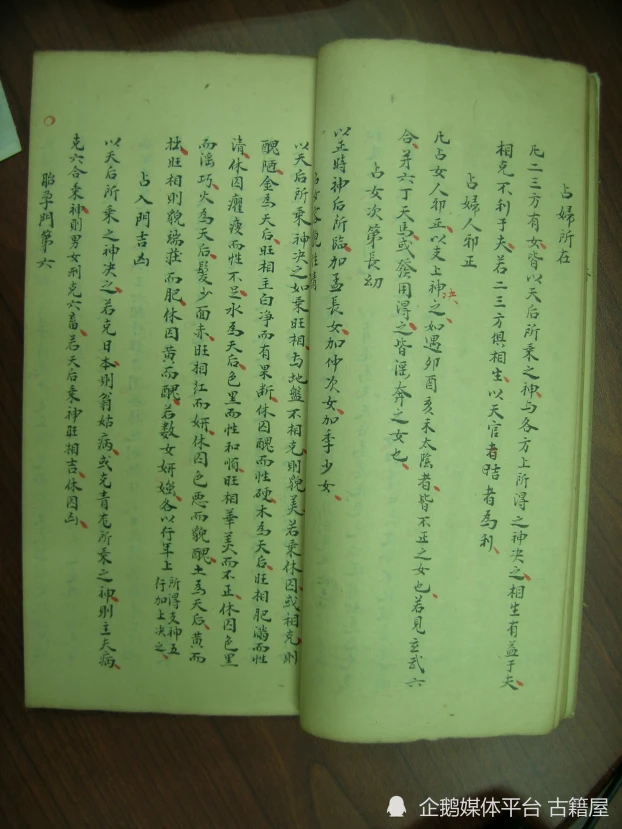 占婦所在
凡二三方有女皆以天后所乘之神与各方上所得之神决之相生有益于夫
相克不利于夫若二三方惧相生以天官者咭者為利
占婦人卯正
凡占女人卯正以支上神决之如遇卯酉亥未太陰者皆不正之女也若見玄武六
合并六丁天馬或發用得之皆滛奔之女也
占女次第長幼
以正時神后所臨加孟長女加仲次女加季少女
占女容貌性情
以天后所乘神决之如乘旺相与地盤不相克則貌美若乘休囚或相克則
醜陋金為天后旺相主白净而有果断休囚醜而性硬木為天后旺相肥滿而性
清休囚癯瘦而性不足水為天后色里而性和惰旺相華美而不正休囚色里
而滛巧火為天后髮少面赤旺相红而妍休囚色悪而貌醜土為天后黄而
拙旺相則貌端莊而肥休囚黄而醜若数女妍媸各以行年上所得支神五行加上决之
占入門吉凶
以天后所乘之神决之若克日本則翁姑病或克青龙所乘之神則主夫病
克六合乘神則男女刑克六畜若天后乘神旺相吉休囚凶
胎孕門第六
企鹅媒体平台 古籍屋